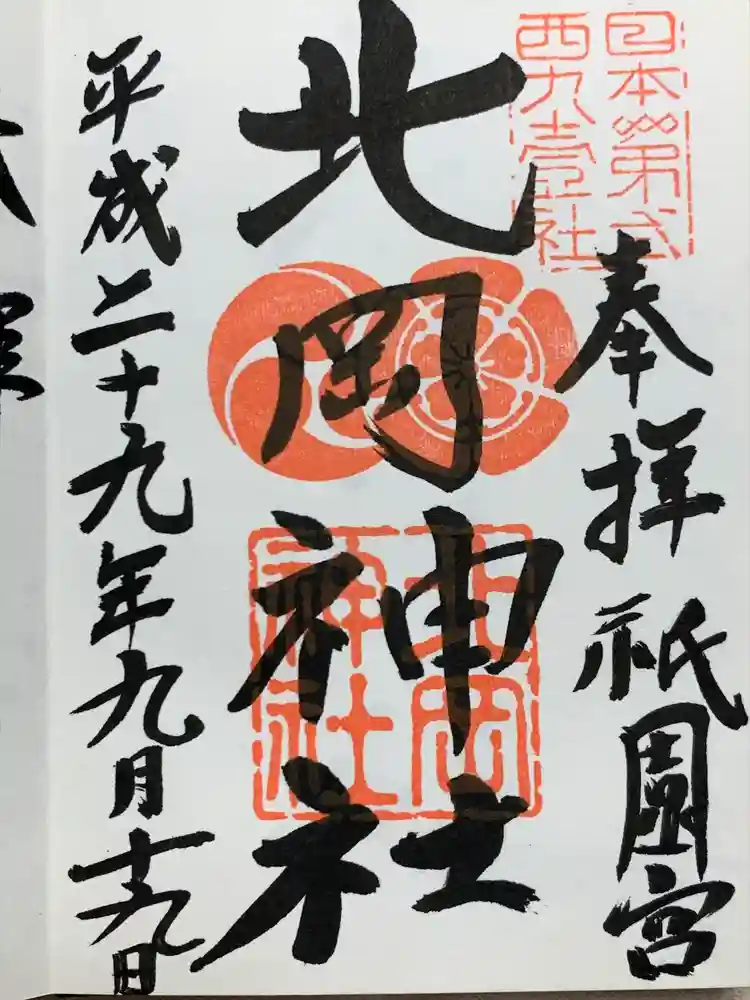 奉拝 祇園宮
日本第弍
西九壹社
北岡神社
北岡
神社
平成二十九年九月十九日